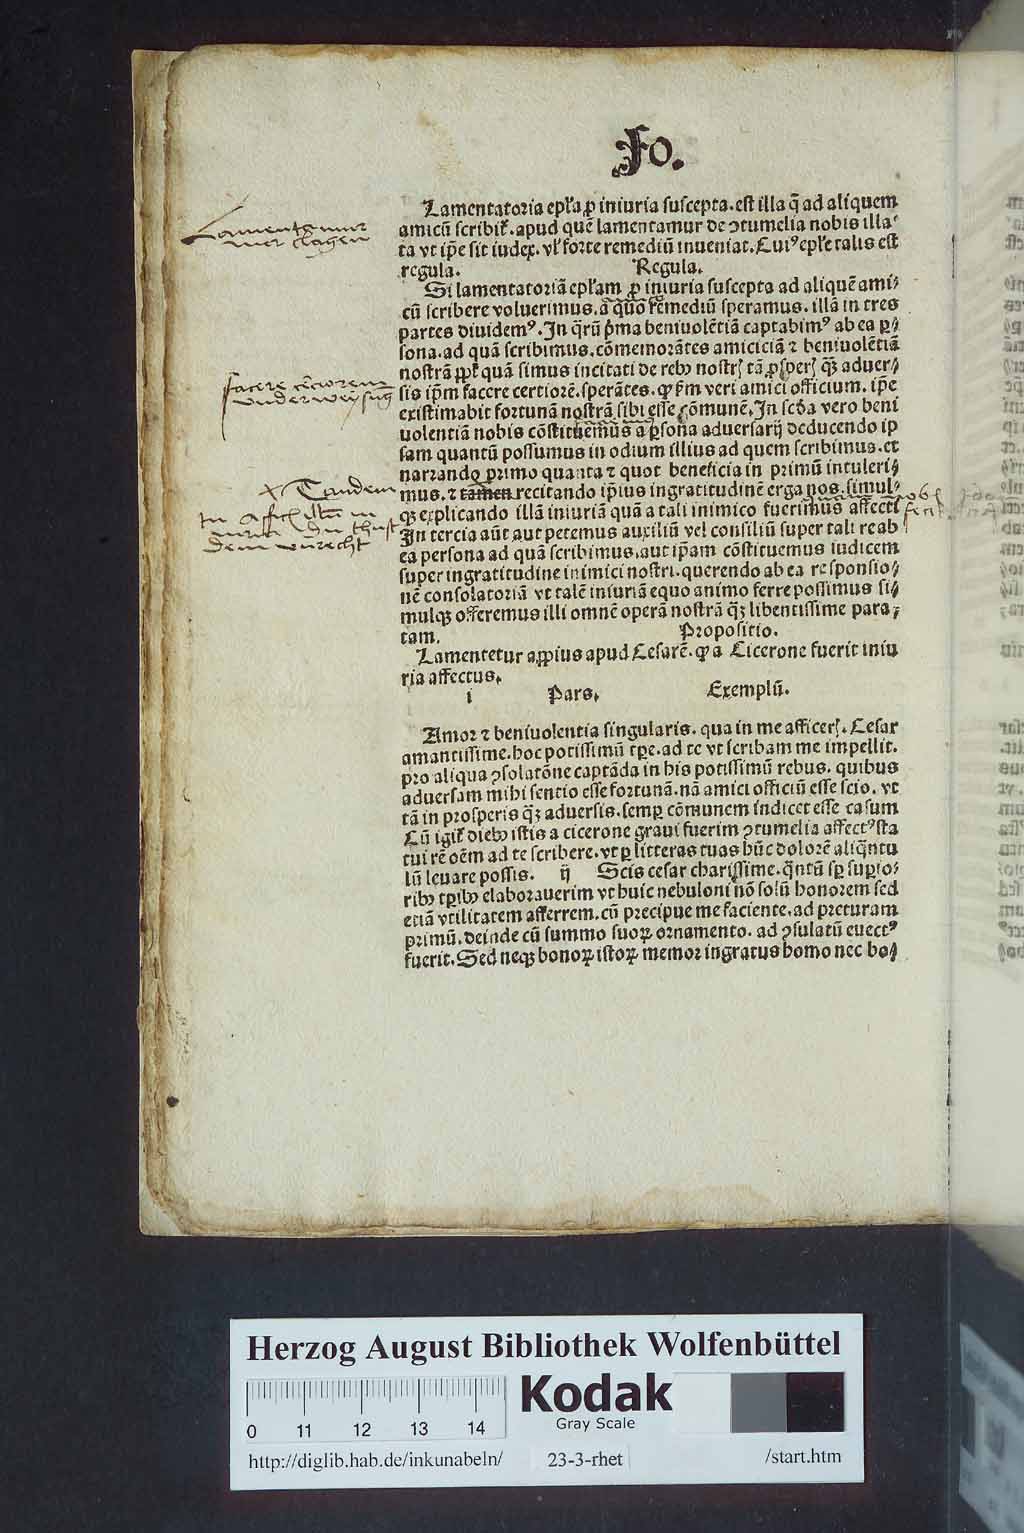 Jo.
Lamentatoria epl'a ꝓ iniuria suscepta. est illa q̄ ad aliquem
amicū scribit̄. apud quē lamentamur de ꝯtumelia nobis illa⸗
ta vt ip̄e sit iudex. vl' forte remediū inueniat. Cuiꝰ epl'e talis est
regula. Regula.
Si lamentatoriā epl'am ꝓ iniuria suscepta ad aliquē ami⸗
cū scribere voluerimus. a quo remediū speramus. illā in tres
partes diuidemꝰ. In q̄rū p̄ma beniuolētiā captabimꝰ ab ea ꝑ⸗
sona. ad quā scribimus. cōmemorātes amiciciā ⁊ beniuolētiā
nostrā ꝓpt̄ quā simus incitati de rebꝫ nostrꝭ tā ꝓsperꝭ qꝫ aduer⸗
sis ip̄m facere certiorē. sperātes. ꝙ km̄ veri amici officium. ip̄e
existimabit fortunā nostrā sibi esse cōmunē. In scd̄a vero beni
uolentiā nobis cōstituemus a ꝑsona aduersarij deducendo ip
sam quantū possumus in odium illius ad quem scribimus. et
narrando primo quanta ⁊ quot beneficia in primū intuleri⸗
mus. ⁊ tamen recitando ip̄ius ingratitudinē erga nos. simul⸗
qꝫ explicando illā iniuriā quā a tali inimico fuerimus affecti
In tercia aūt aut petemus auxiliū vel consiliū super tali re ab
ea persona ad quā scribimus. aut ip̄am cōstituemus iudicem
super ingratitudine inimici nostri. querendo ab ea responsio⸗
nē consolatoriā vt talē iniuriā equo animo ferre possimus si⸗
mulqꝫ offeremus illi omnē operā nostrā qꝫ libentissime para⸗
tam. Propositio.
Lamentetur appius apud Cesarē. ꝙ a Cicerone fuerit iniu
ria affectus.
i Pars. Exemplū.
Amor ⁊ beniuolentia singularis. qua in me afficerꝭ. Cesar
amantissime. hoc potissimū tp̄e. ad te vt scribam me impellit.
pro aliqua ꝯsolatōne captāda in his potissimū rebus. quibus
aduersam mihi sentio esse fortunā. nā amici officiū esse scio. vt
tā in prosperis qꝫ aduersis. semꝑ cōmunem indicet esse casum
Cū igit̄ diebꝫ istis a cicerone graui fuerim ꝯtumelia affectꝰ sta
tui rē oēm ad te scribere. vt ꝑ litteras tuas hūc dolorē aliq̄ntu
lū leuare possis. ij Scis cesar charissime. q̄ntū sꝑ suꝑio⸗
ribꝫ tp̄ibꝫ elaborauerim vt huic nebuloni nō solū honorem sed
etiā vtilitatem afferrem. cū precipue me faciente. ad preturam
primū. deinde cū summo suoꝝ ornamento. ad ꝯsulatū euectꝰ
fuerit. Sed neqꝫ honoꝝ istoꝝ memor ingratus homo nec bo⸗
Lamentamur
wer clagen
facere certiorem
vnderweysung
x Tandem
dem vnrecht
Herzog August Bibliothek Wolfenbüttel
Kodak
Gray Scale
0 11 12 13 14
http://diglib.hab.de/inkunabeln/ 23-3-rhet /start.htm